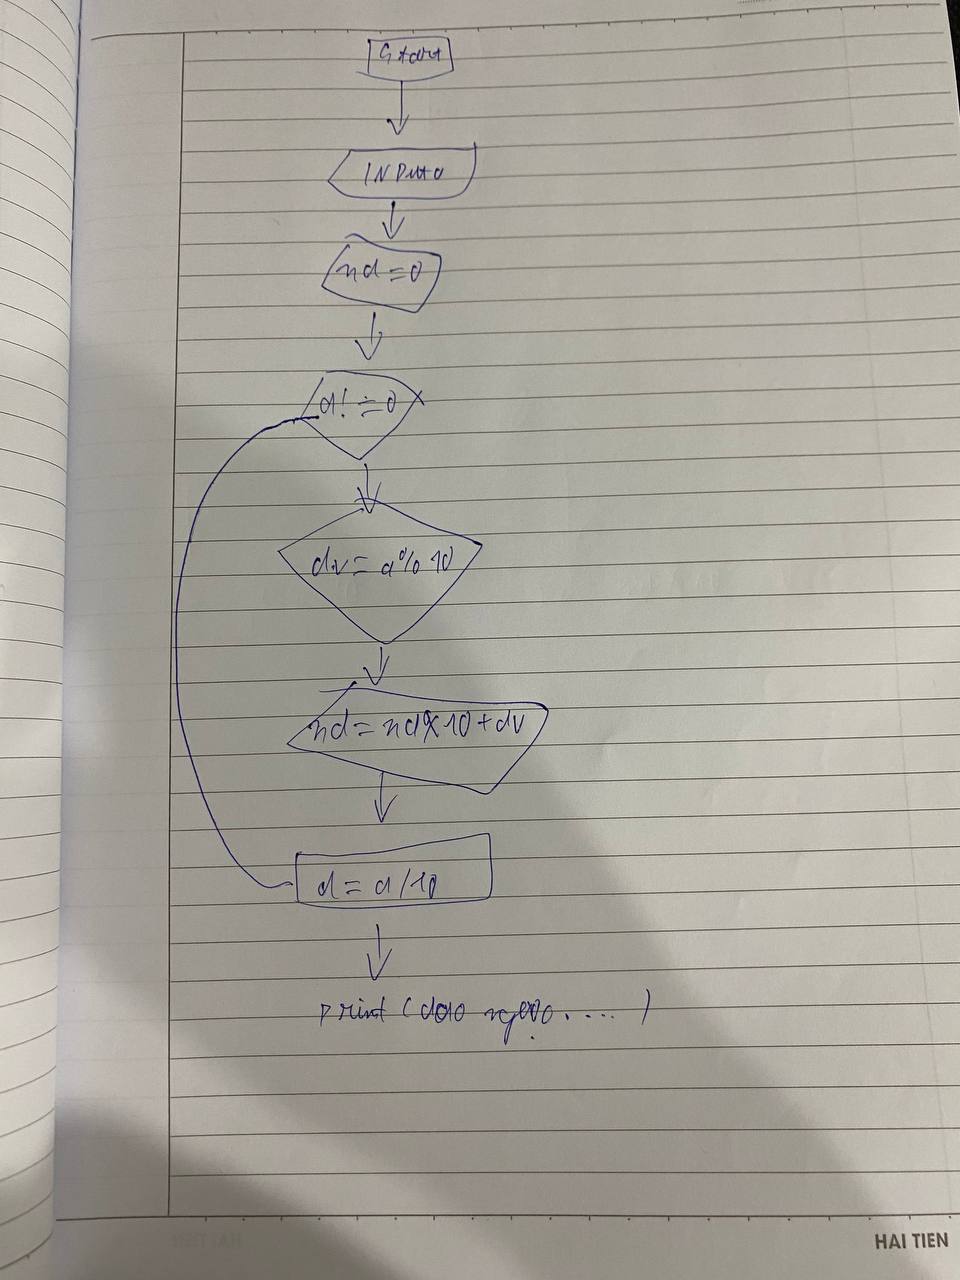 Start
INPut a
nd = 0
a! = 0
dv = a % 10
nd = nd x 10 + dv
a = a / 10
print (đảo ngược.....)
HAI TIEN